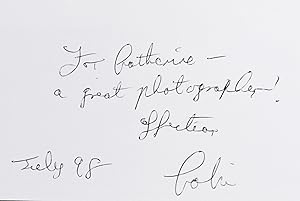 For Catherine –
a great photographer!
Affection
July 98